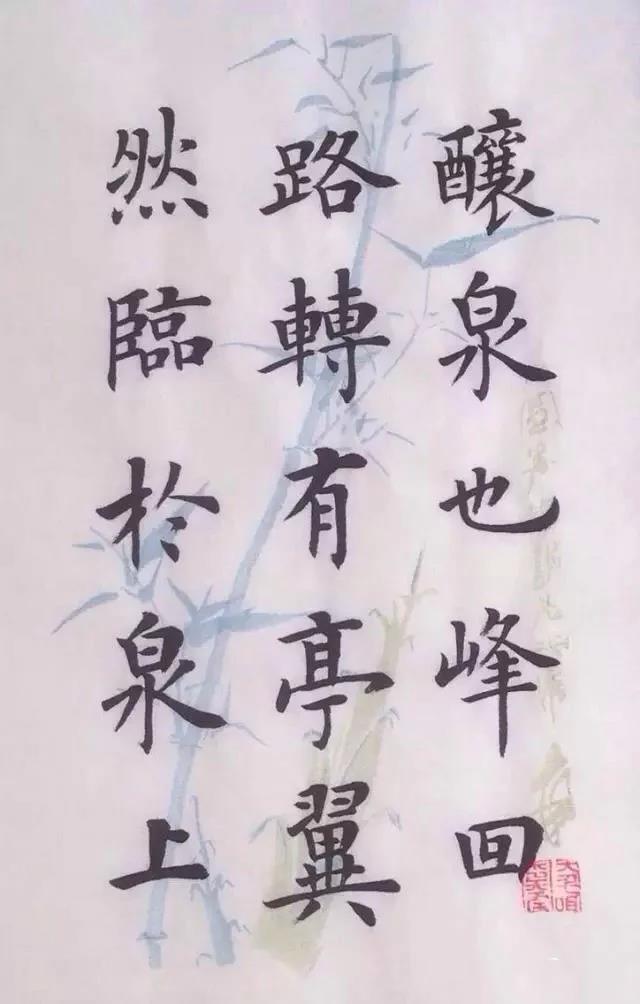 釀泉也峰回
路轉有亭翼
然臨於泉上